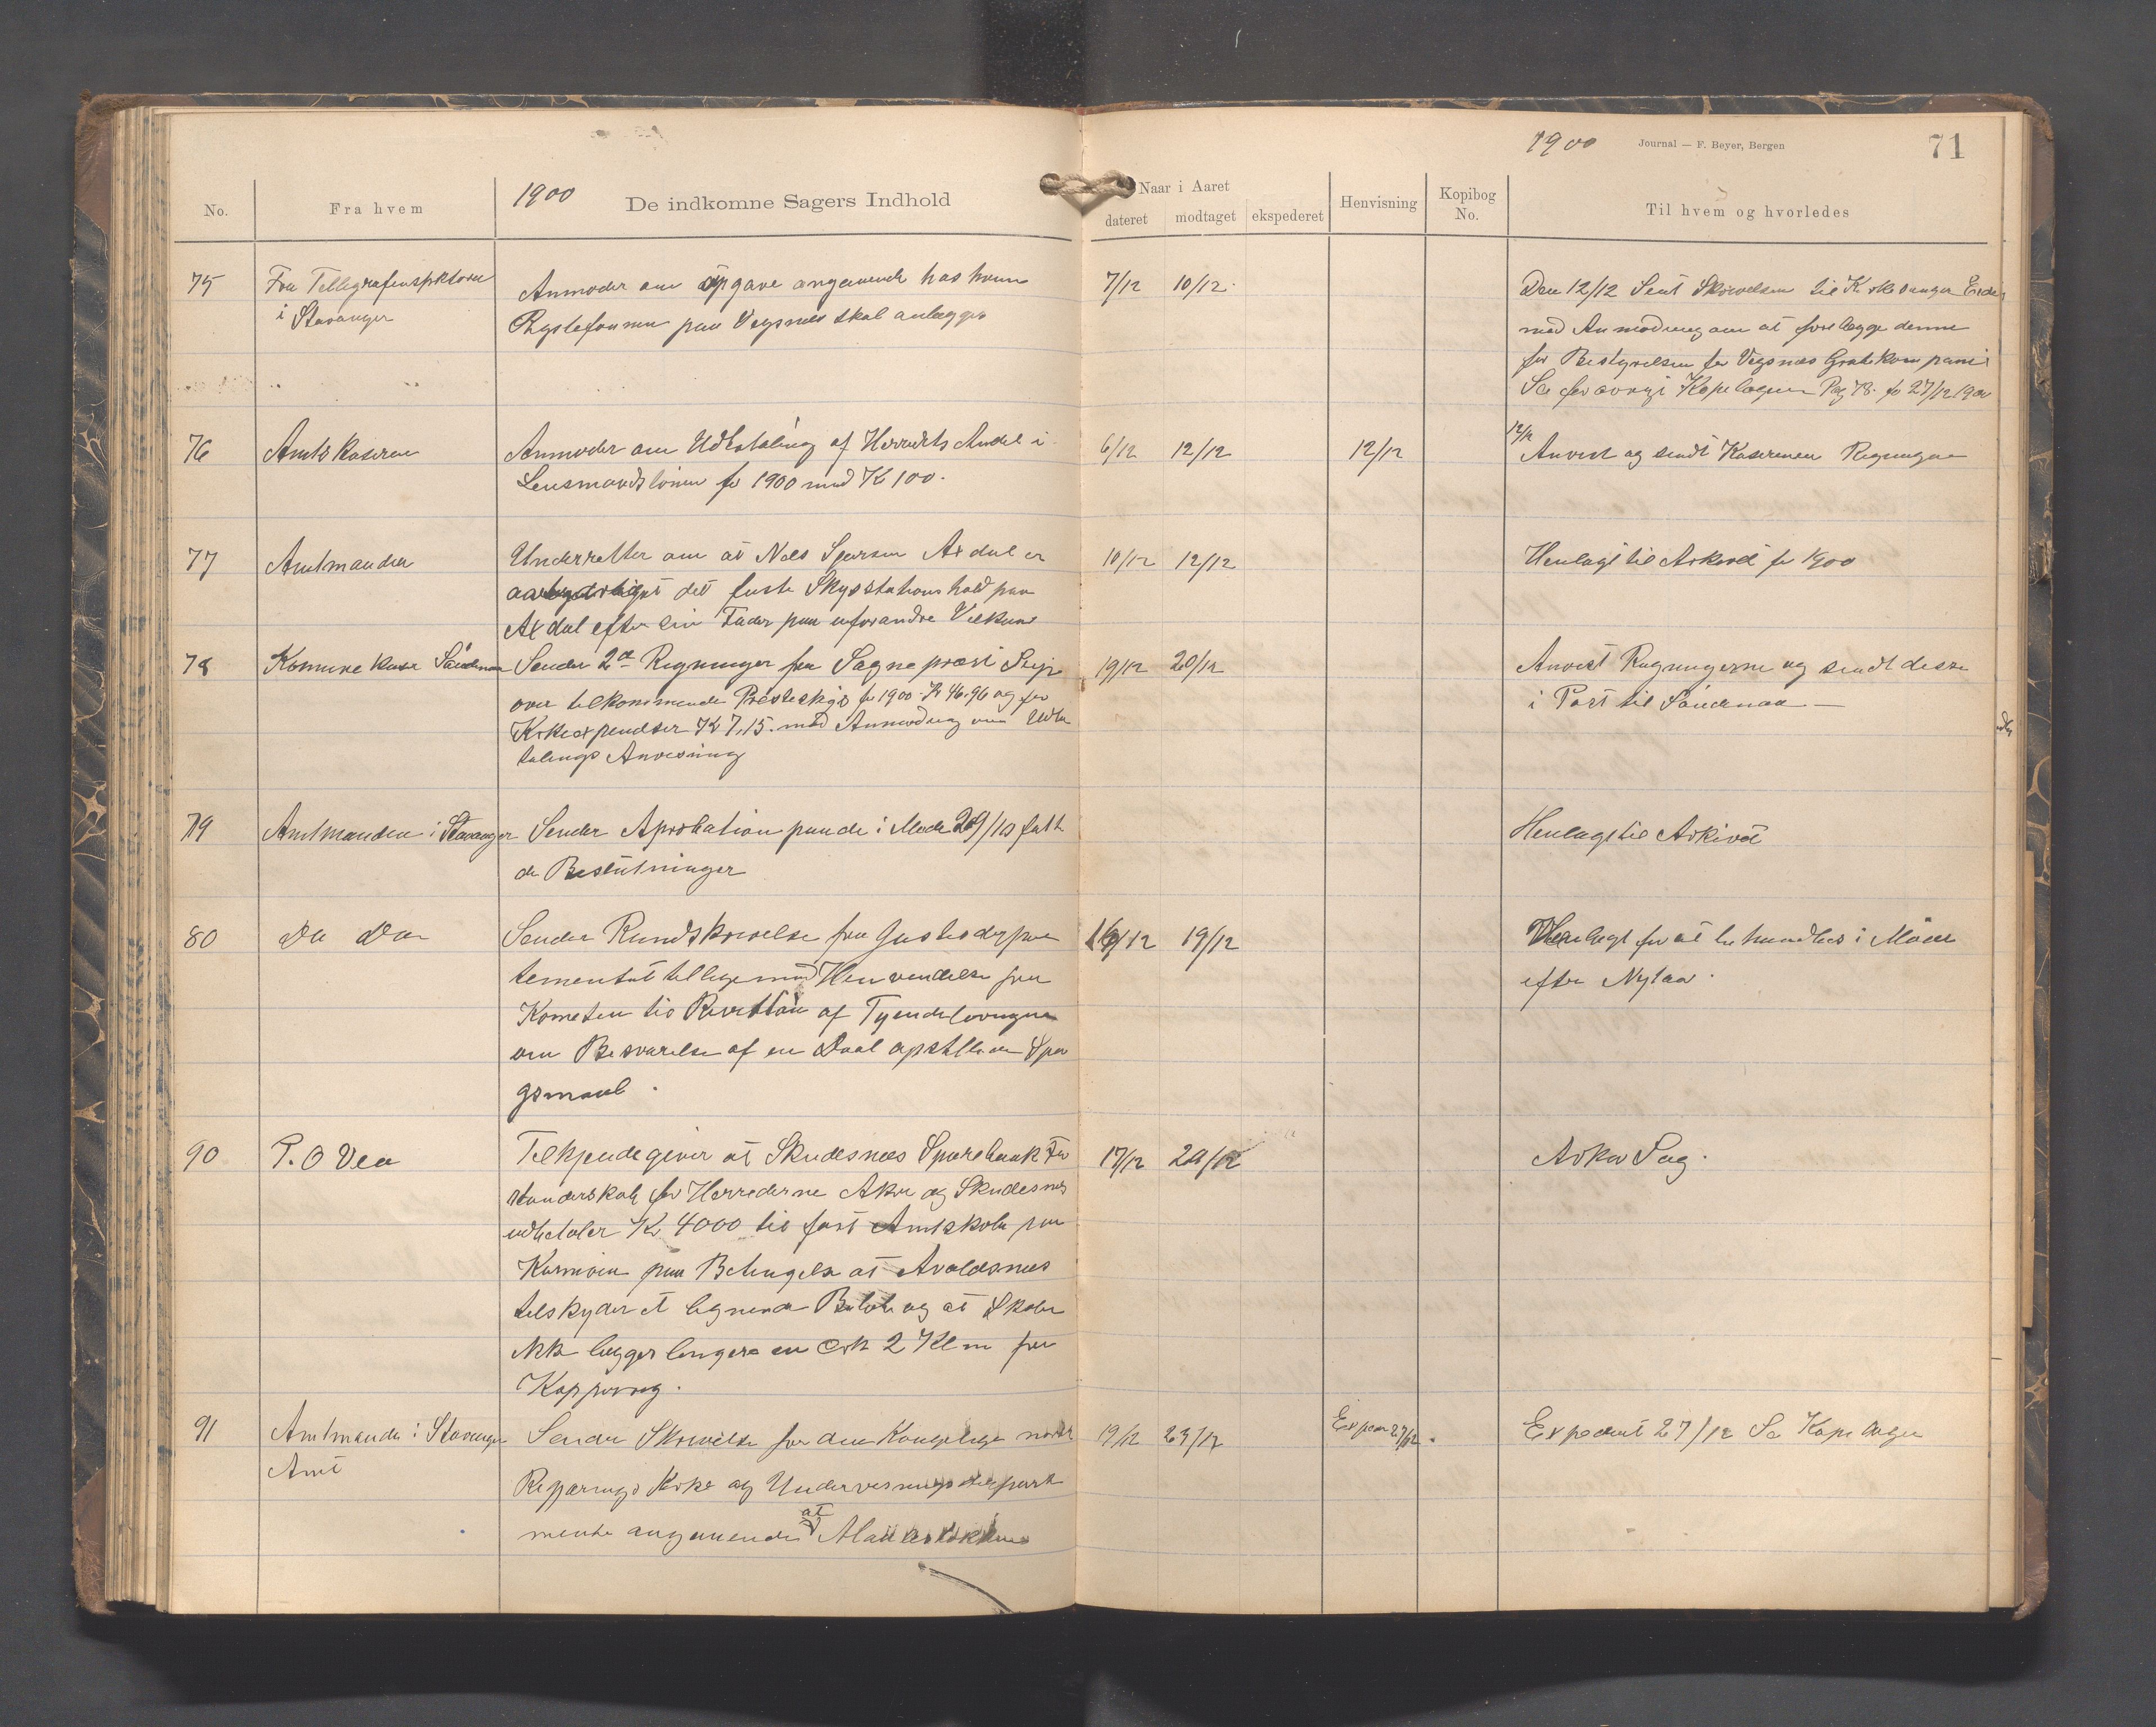 1900
Journal — F. Beyer, Bergen
71
No.
Fra hvem
1900
De indkomne Sagers Indhold
Naar i Aaret
dateret
modtaget
ekspederet
Henvisning
Kopibog
No.
Til hvem og hvorledes
75
Fra Tellegrafinspktoren
i Stavanger
Anmoder om opgave angaaende hos hvem
paa Vegsnes skal anlægges
7/12
10/12.
Den 12/12 Sent Skrivelsen til Kirkesanger
med Anmodning om at forelægge denne
for Bestyrelsen for Vegsnes Grubekompani
Se forøvrigt Kopibogen Pag 78. for 27/12 1900
76
Amtskasseren
Anmoder om Udbetaling af Herredets Andel i
Lensmandslønnen for 1900 med K 100.
6/12
12/12
12/12
12/12
Anvist og sendt Kasereren Regningen
77
Amtmanden
Underretter om at Nels Axdal er
det faste Skydsstationshold paa
Axdal efter sin Fader paa uforandre Vilkaar
10/12
12/12
Henlagt til Arkivet for 1900
78
Komune kasse
Sender 2de Regninger fra Sogneprest
over tilkommende Presteskyds for 1900 Kr 46.96 og for
Kirkeexpendser Kr 7,15. med Anmodning om Udbe
talings Anvisning
19/12
20/12
Anvist Regningerne og sendt disse
i Post til
79
Amtmanden i Stavanger
Sender Aprobation paa de i Møde 29/10 fatte
de Beslutninger
Henlagt til Arkivet
80
Do Do
Sender Rundskrivelse fra Justisdepar
tementet tillige med Henvendelse fra
Kometen til Revition af Tyendelovengen
om Besvarelse af en Deel opstillede Spør
gsmaal.
12
19/12
Henlagt for at behandles i Møde
efter Nytaar.
90
P. O Vea
Tilkjendegiver at Skudesnes Sparebank For
standerskab for Herrederne Akre og Skudesnes
udbetaler Kr. 4000 til fast Amtskole paa
Karmøen paa Betingelse at Avaldsnes
tilskyder et lignende Beløb og at Skolen
ikke lægges lengere en 2 Klm fra
Koppervig.
17/12
20/12
Arkiv Sag.
91
Amtmanden i Stavanger
Amt
Sender Skrivelse fra den Kongelige norske
Regjerings Kirke og Undervisningsdepart
mente angaaende at
19/12
23/12
27/12.
Expedert 27/12 Se Kopibogen